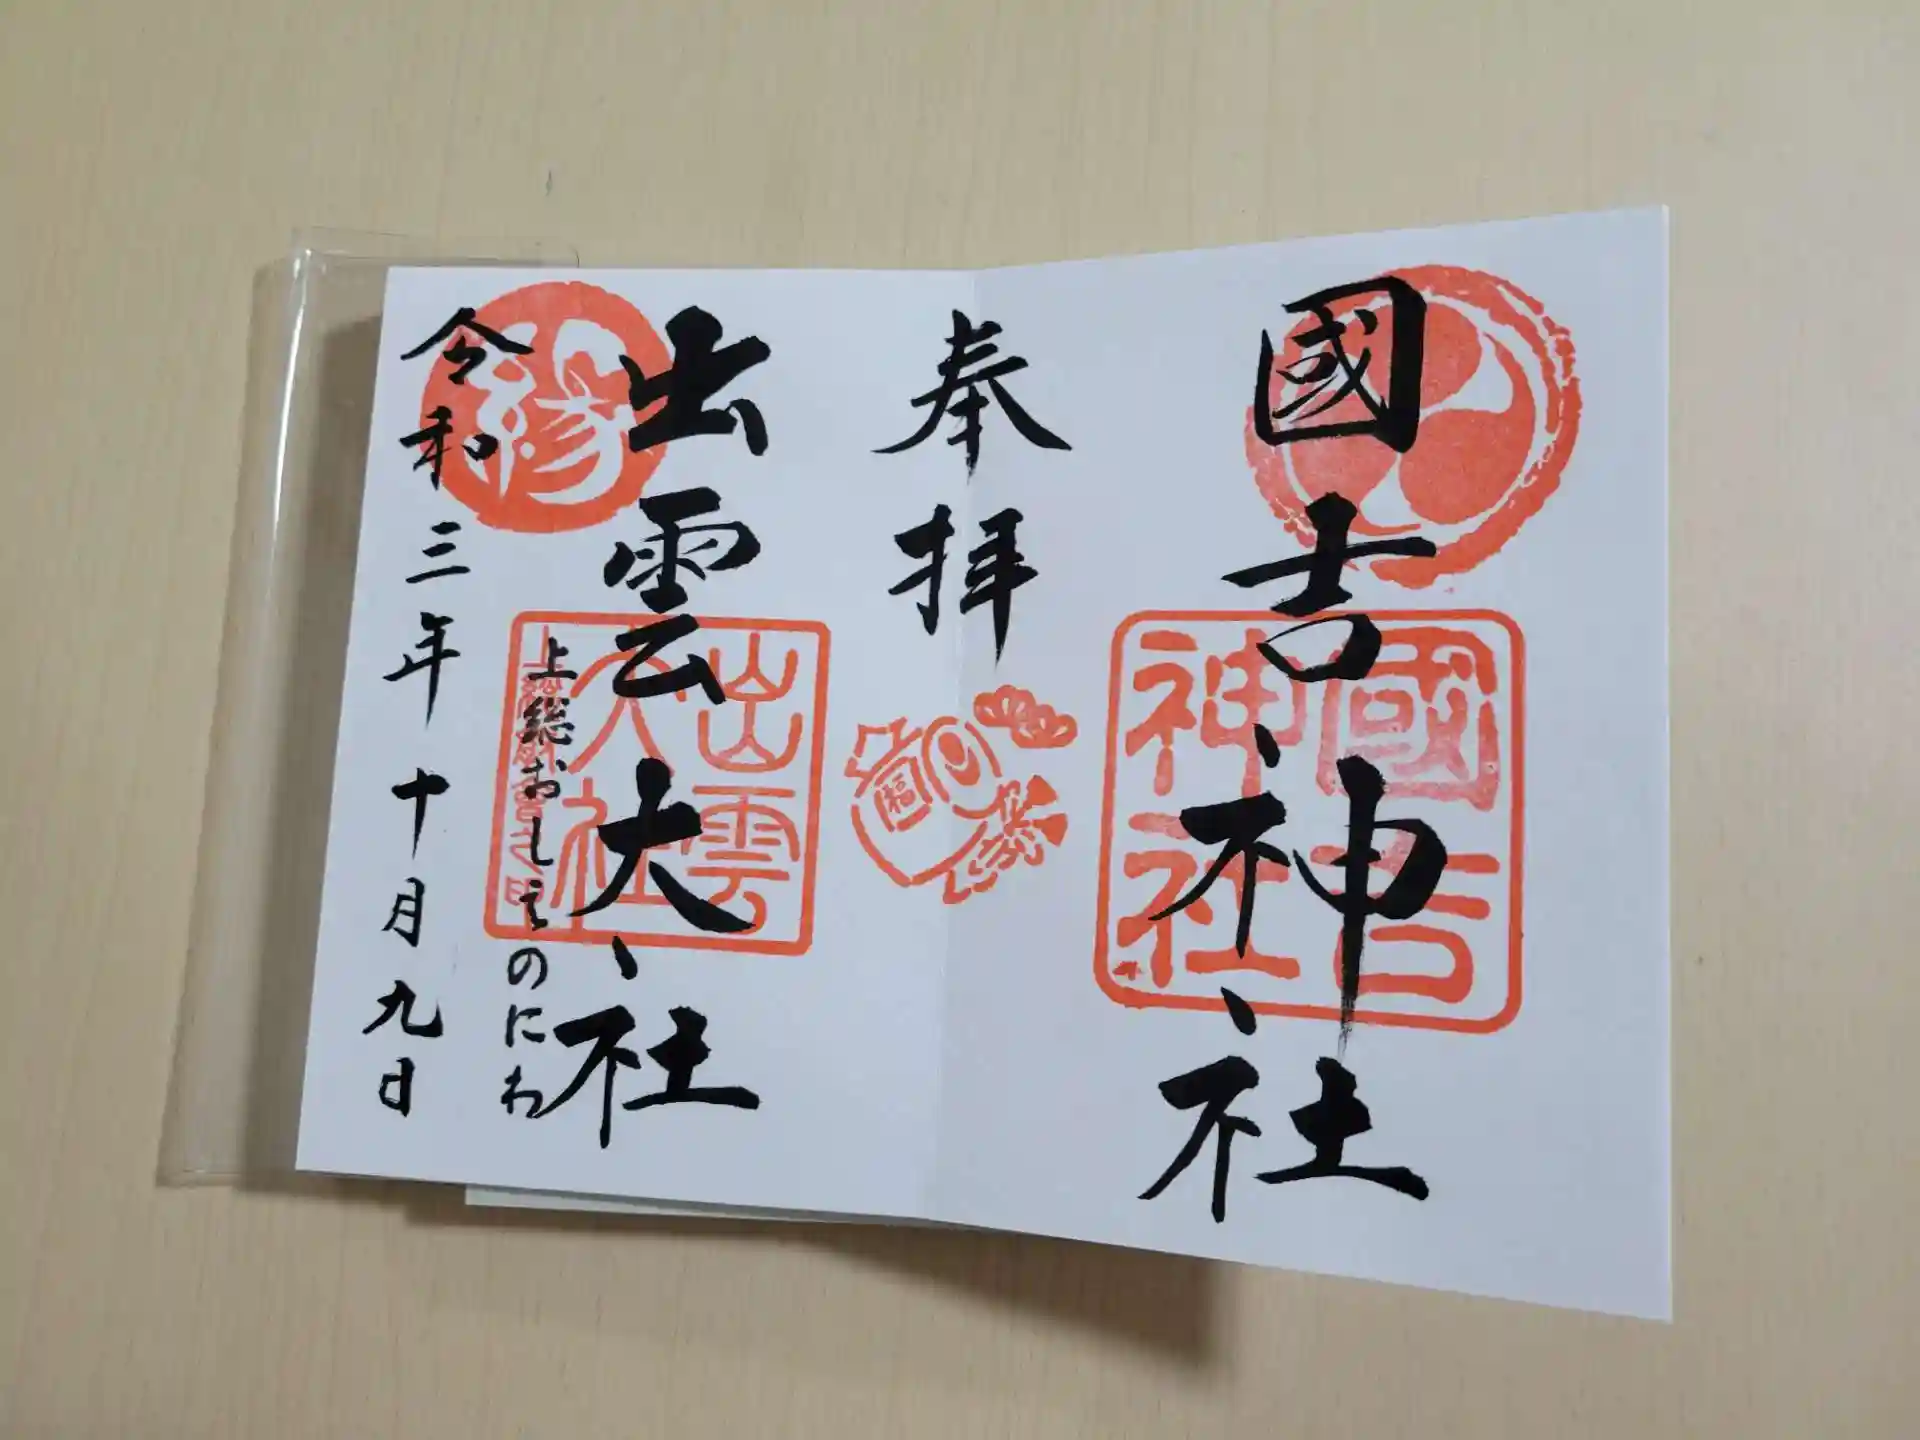 國吉神社
國吉
神社
奉拝
福
出雲大社
出雲
大社
縁
上総おしえのにわ
令和三年十月九日